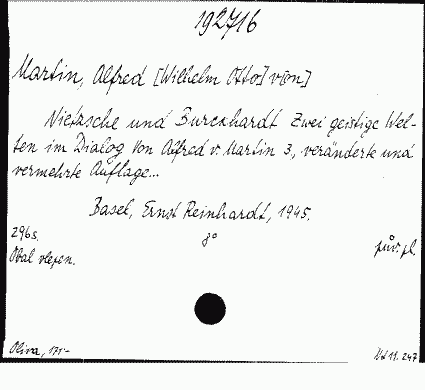 192716
Martin, Alfred [Wilhelm Otto] von]
Nietzsche und Burckhardt Zwei geistige Wel-
ten im Dialog von Alfred v. Martin 3., veränderte und
vermehrte Auflage...
Basel, Ernst Reinhardt, 1945.
296s. 8° pův. pl.
Obal vlepen.
Oliva, 171-